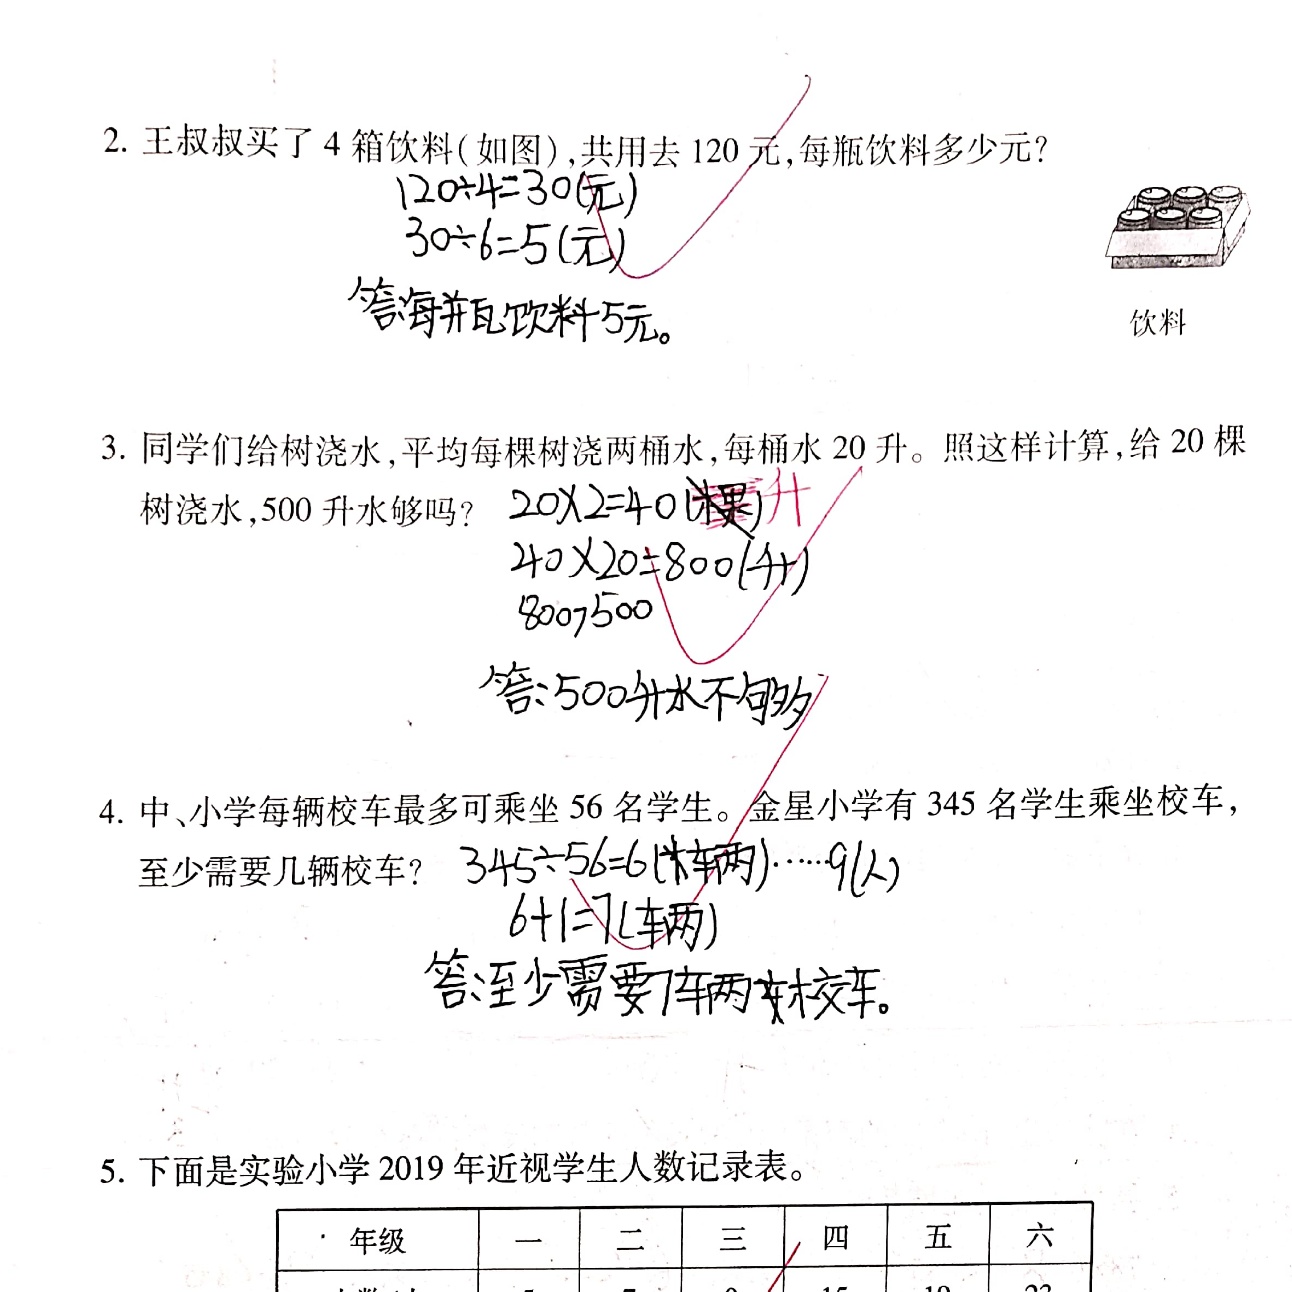 2. 王叔叔买了 4 箱饮料(如图),共用去 120 元,每瓶饮料多少元?
120÷4=30(元)
30÷6=5(元)
答:每瓶饮料5元。
饮料
3. 同学们给树浇水,平均每棵树浇两桶水,每桶水 20 升。照这样计算,给 20 棵
树浇水,500 升水够吗? 20×2=40(棵)升
40×20=800(升)
800>500
答:500升水不够
4. 中、小学每辆校车最多可乘坐 56 名学生。金星小学有 345 名学生乘坐校车,
至少需要几辆校车? 345÷56=6(辆)……9(人)
6+1=7(辆)
答:至少需要7辆校车。
5. 下面是实验小学 2019 年近视学生人数记录表。
年级 一 二 三 四 五 六